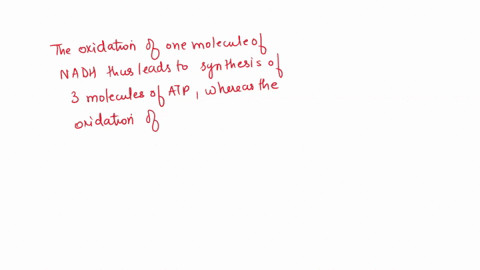 The oxidation of one molecule of
NADH thus leads to synthesis of
3 molecules of ATP, whereas the
oxidation of